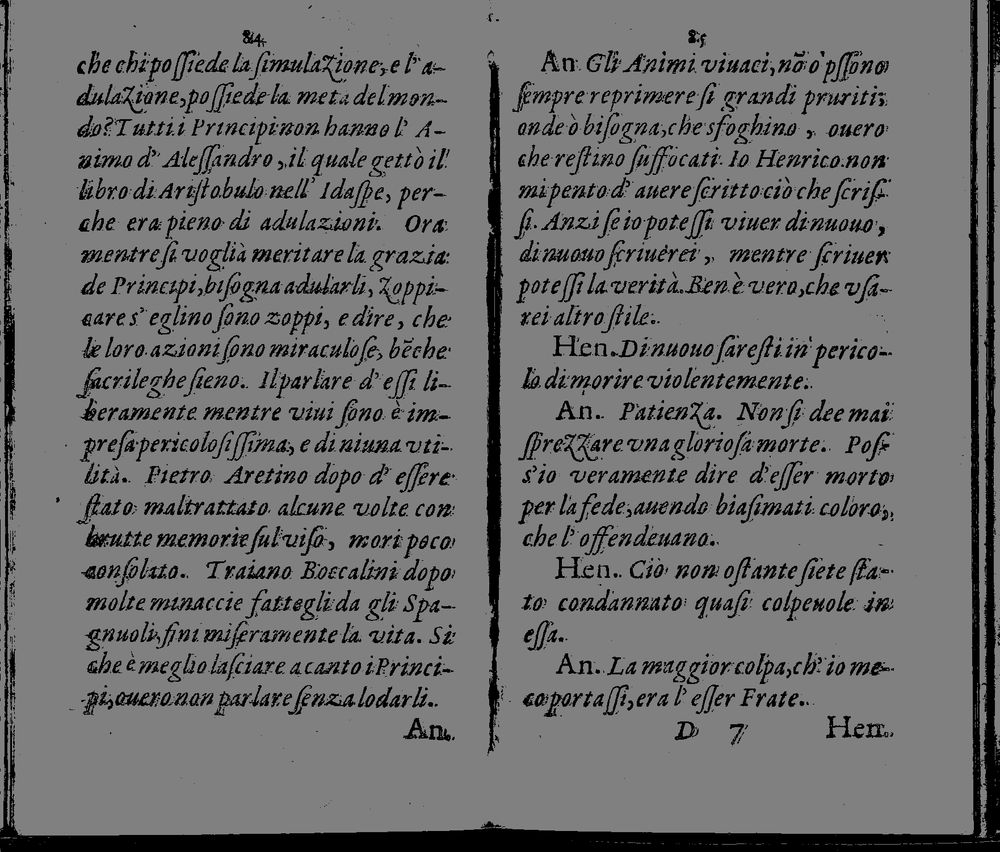 84
che chi possiede la simulazione, e l' a-
dulazione, possiede la meta del mon-
do? Tutti i Principi non hanno l' A-
nimo d' Alessandro, il quale gettò il
libro di Aristobulo nell' Idaspe, per-
che era pieno di adulazioni. Ora
mentre si voglia meritare la grazia
de Principi, bisogna adularli, zoppi-
care s' eglino sono zoppi, e dire, che
le loro azioni sono miraculose, bẽche
sacrileghe sieno. Il parlare d' essi li-
beramente mentre vivi sono è im-
presa pericolosissima, e di niuna vti-
lità. Pietro Aretino dopo d' essere
stato maltrattato alcune volte con
brutte memorie sul viso, mori poco
consolato. Traiano Boccalini dopo
molte minaccie fattegli da gli Spa-
gnuoli, fini miseramente la vita. Si
che è meglio lasciare a canto i Princi-
pi, ouero non parlare senza lodarli.
An.
85
An Gli Animi viuaci, nõ ò pssono
sempre reprimere si grandi pruriti;
onde ò bisogna, che sfoghino, ouero
che restino suffocati. Io Henrico non
mi pento d' auere scritto ciò che scris-
si. Anzi se io potessi viuer di nuouo,
di nuouo scriuerei, mentre scriuer
potessi la verità. Ben è vero, che vsa-
rei altro stile.
Hen. Di nuouo saresti in perico-
lo di morire violentemente.
An. Patienza. Non si dee mai
sprezzare vna gloriosa morte. Pos-
s'io veramente dire d'esser morto
per la fede, auendo biasimati coloro,
che l' offendeuano.
Hen. Ciò non ostante siete sta-
to condannato quasi colpeuole in
essa.
An. La maggior colpa, ch' io me-
co portassi, era l' esser Frate.
D 7 Hen.